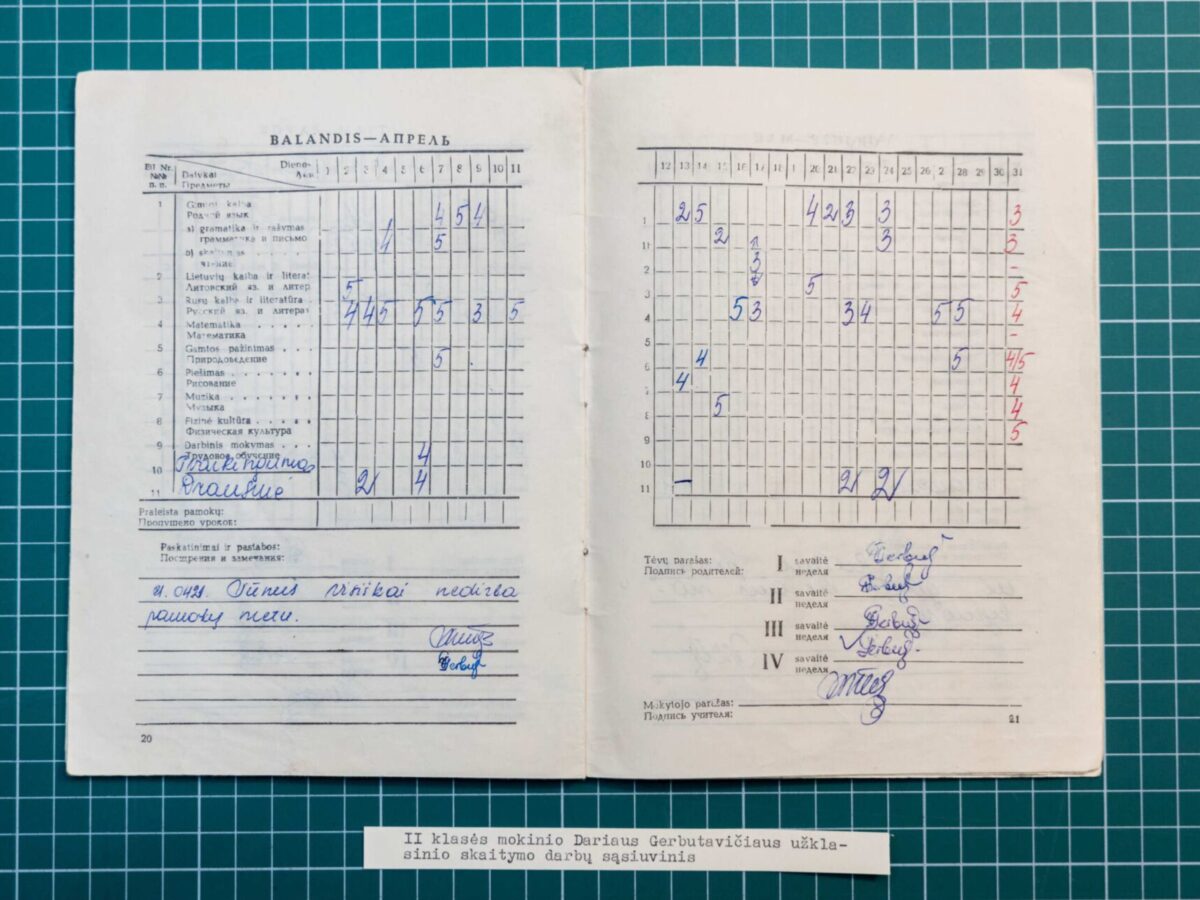 BALANDIS—АПРЕЛЬ
Eil Nr. Dalykai Dienos
№№ п. п. Предметы
1 2 3 4 5 6 7 8 9 10 11
1 Gimtoji kalba
Родной язык 4 5 4
a) gramatika ir rašymas
грамматика и письмо 4 5
b) skaitymas
чтение
2 Lietuvių kalba ir literat
Литовский яз. и литер 5
3 Rusų kalba ir literatūra
Русский яз. и литерат 4 4 5 5 5 3 5
4 Matematika
Математика
5 Gamtos pažinimas
Природоведение 5
6 Piešimas
Рисование
7 Muzika
Музыка
8 Fizinė kultūra
Физическая культура
9 Darbinis mokymas
Трудовое обучение 4
10
11 Drausmė 2 4
Praleista pamokų:
Пропущено уроков:
Paskatinimai ir pastabos:
Поощрения и замечания:
nedirba
pamokų metu.
20
12 13 14 15 16 17 18 20 21 22 23 24 25 26 2 28 29 30 31
1 2 5 4 2 3 3 3
2 3 3
2 3 -
3 5 5
4 5 3 3 4 5 5 4
-
5
6 4 5 4/5
7 4 4
8 5 4
9 5
10
11 – 2 2
Tėvų parašas: I savaitė
Подпись родителей: неделя
II savaitė
неделя
III savaitė
неделя
IV savaitė
неделя
Mokytojo parašas:
Подпись учителя:
21
II klasės mokinio Dariaus Gerbutavičiaus užkla-
sinio skaitymo darbų sąsiuvinis